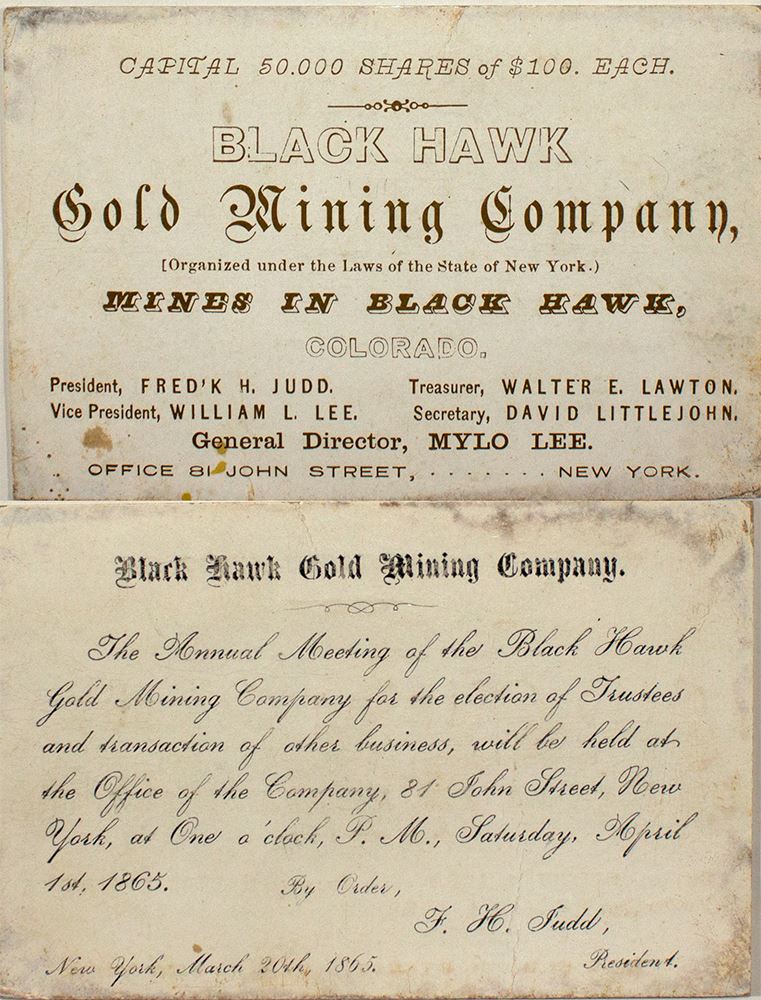 CAPITAL 50.000 SHARES of $100. EACH.
BLACK HAWK
Gold Mining Company,
[Organized under the Laws of the State of New York.)
MINES IN BLACK HAWK,
COLORADO.
President, FRED'K H. JUDD. Treasurer, WALTER E. LAWTON.
Vice President, WILLIAM L. LEE. Secretary, DAVID LITTLEJOHN.
General Director, MYLO LEE.
OFFICE 81 JOHN STREET, . . . . . . . NEW YORK.
Black Hawk Gold Mining Company.
The Annual Meeting of the Black Hawk
Gold Mining Company for the election of Trustees
and transaction of other business, will be held at
the Office of the Company, 81 John Street, New
York, at One o'clock, P. M., Saturday, April
1st, 1865. By Order,
F. H. Judd,
New York, March 20th, 1865. President.